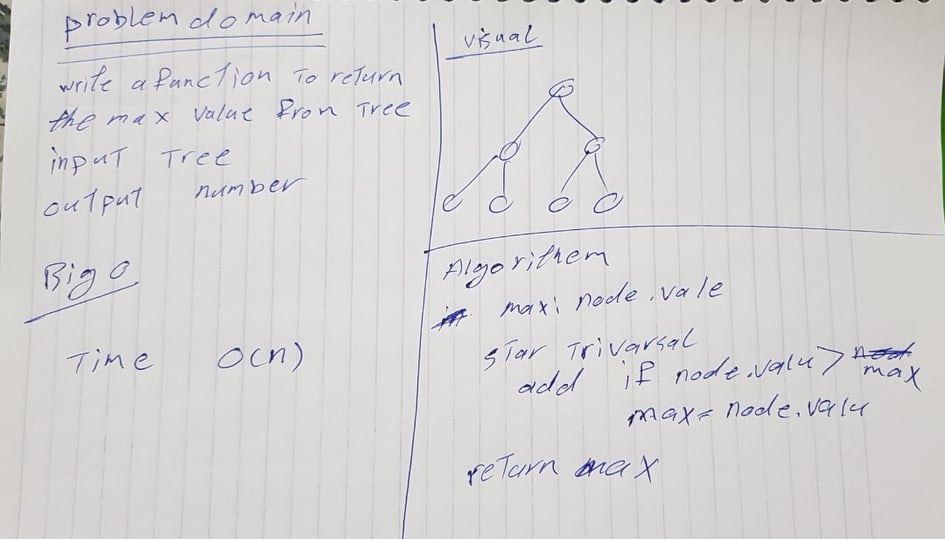 problem domain
write a function To return
the max value from Tree
input Tree
output number
Big O
Time O(n)
visual
Algorithem
max: node.vale
star Trivarsal
add if node.valu > max
max = node.valu
return max